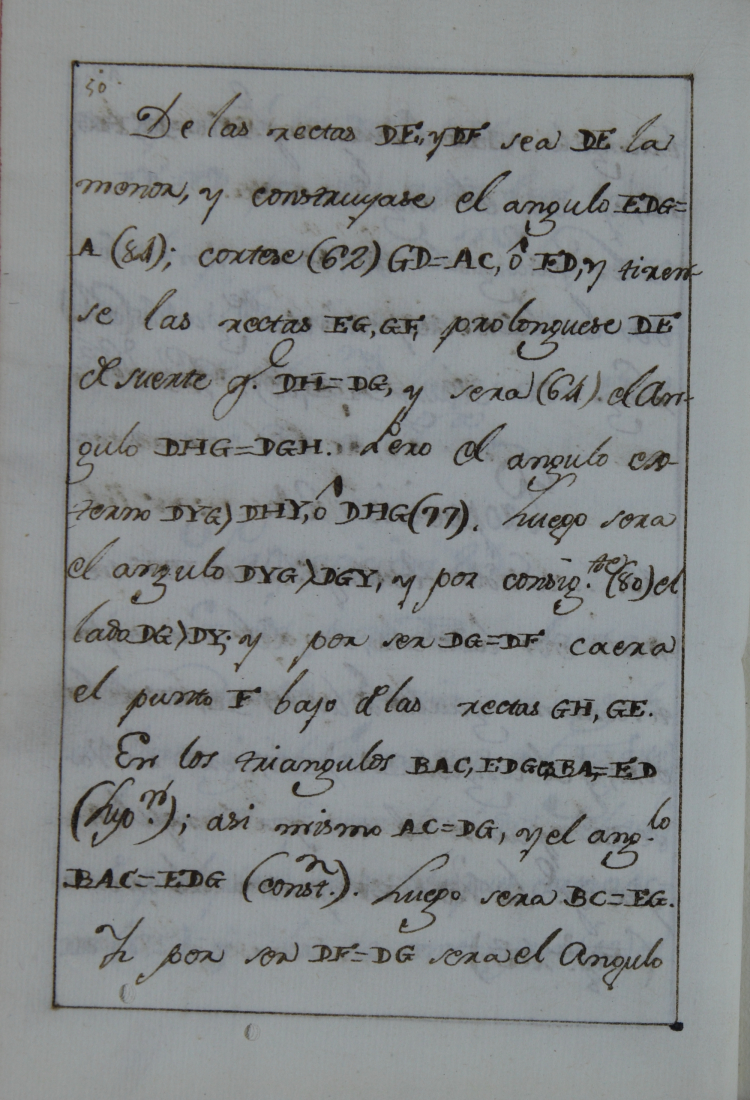 50.
De las rectas DE, y DF sea DE la
menor, y construyase el angulo EDG=
A (81); cortese (62) GD=AC, ô ED, y tiren-
se las rectas EG, GF, prolonguese DE
de suerte q.e DH=DG, y sera (64) el An-
gulo DHG=DGH. Pero el angulo ex-
terno DYG>DHY, ô DHG (77). Luego sera
el angulo DYG>DGY, y por consig.te (80) el
lado DG>DY; y por ser DG=DF caera
el punto F bajo de las rectas GH, GE.
En los triangulos BAC, EDG BA=ED
(hyp.n); asi mismo AC=DG, y el ang.lo
BAC=EDG (const.n). Luego sera BC=EG.
Y por ser DF=DG sera el Angulo